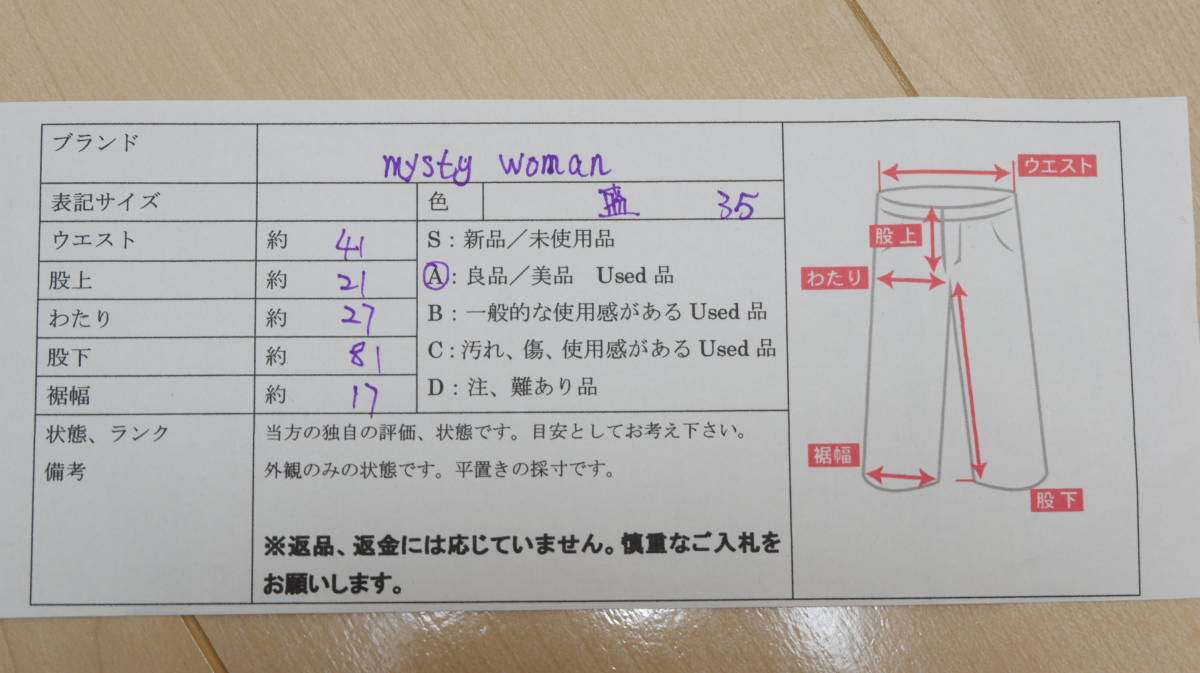 ブランド mysty woman
表記サイズ 色 35
ウエスト 約 41 S：新品／未使用品
股上 約 21 A：良品／美品 Used 品
わたり 約 27 B：一般的な使用感がある Used 品
股下 約 81 C：汚れ、傷、使用感がある Used 品
裾幅 約 17 D：注、難あり品
状態、ランク 当方の独自の評価、状態です。目安としてお考え下さい。
備考 外観のみの状態です。平置きの採寸です。
※返品、返金には応じていません。慎重なご入札を
お願いします。
ウエスト
股上
わたり
裾幅
股下